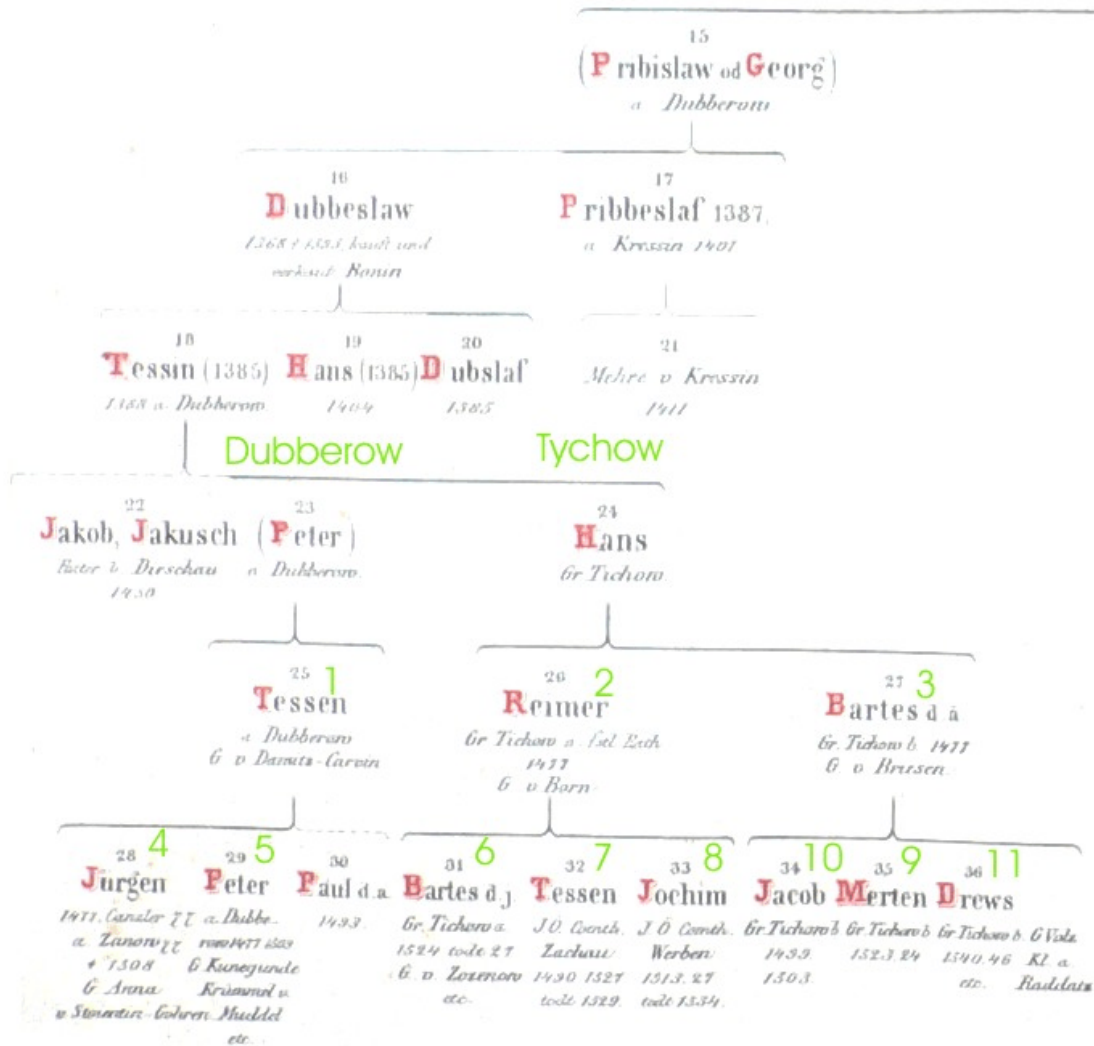 15
(Pribislaw od Georg)
a Dubberow
16
Dubbeslaw
1368 † 1385, kauft und
verkauft Bonin
17
Pribbeslaf 1387.
a Kressin 1401
18
Tessin (1385)
1388 a Dubberow
19
Hans (1385)
1404
20
Dubslaf
1385
21
Mehre v Kressin
1411
Dubberow
Tychow
22
Jakob, Jakusch
b Dirschau
1430
23
(Peter)
a Dubberow.
24
Hans
Gr Tichow
25 1
Tessen
a Dubberow
G v Damitz-Carvin
26 2
Reimer
Gr Tichow a
1477
G v Born
27 3
Bartes d ä
Gr. Tichow b 1477
G. v Brusen.
28 4
Jürgen
1477. Canzler
a Zanow
† 1508
G Anna
v Stojentin-Gohren
29 5
Peter
a. Dubbe-
row 1477
G Kunegunde
Krümmel v.
Muddel
etc.
30
Paul d.a.
1493.
31 6
Bartes d.j.
Gr. Tichow a.
1524 todt 27
G. v. Zozenow
etc.
32 7
Tessen
J.O. Comth.
Zachau
1490 1527
todt 1529.
33 8
Jochim
J O Comth.
Werben
1513. 27
todt 1534.
34 10
Jacob
Gr Tichow b
1499.
1503.
35 9
Merten
Gr Tichow b
1523. 24
36 11
Drews
Gr Tichow b. G Volz
1540. 46 Kl. a.
etc. Raddatz